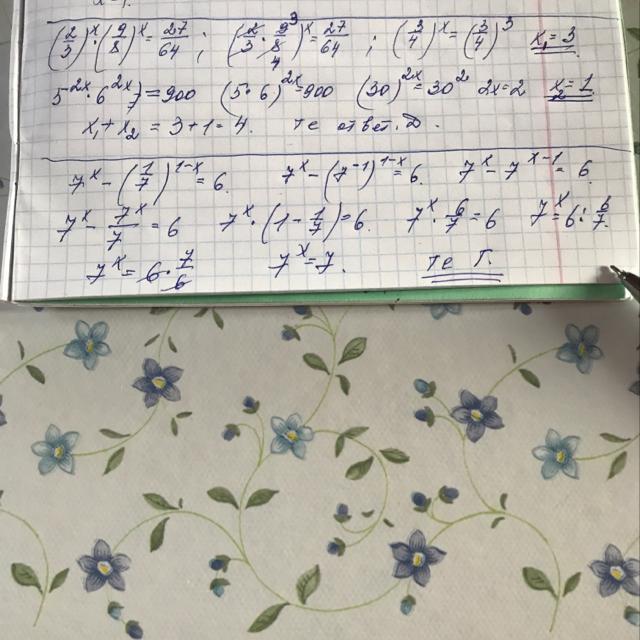 (2/3)^x · (9/8)^x = 27/64 ; (2/3 · 9/8)^x = 27/64 ; (3/4)^x = (3/4)^3 x₁ = 3
5^2x · 6^2x = 900 (5·6)^2x = 900 (30)^2x = 30^2 2x = 2 x₂ = 1
x₁ + x₂ = 3 + 1 = 4. те ответ. Д.
7^x − (1/7)^1−x = 6. 7^x − (7^−1)^1−x = 6. 7^x − 7^x−1 = 6.
7^x − 7^x/7 = 6 7^x · (1 − 1/7) = 6. 7^x · 6/7 = 6 7^x = 6 : 6/7.
7^x = 6 · 7/6 7^x = 7. те Г.